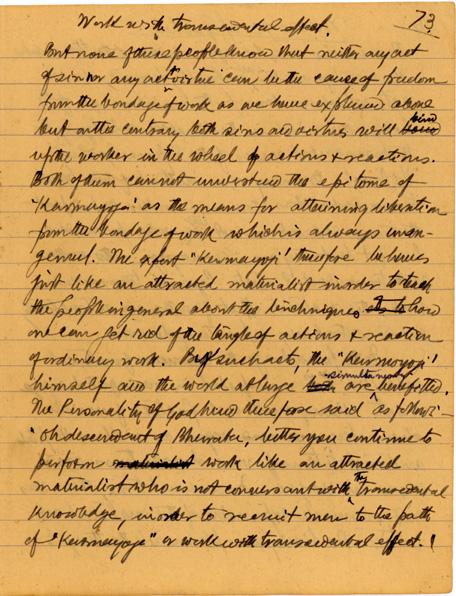 73
Work with transcendental effect.
But none of these people know that neither any act
of sin nor any act of virtue can be the cause of freedom
from the bondage of work as we have explained above
but on the contrary both sins and virtues will bind
up the worker in the wheel of actions & reactions.
Both of them cannot understand the epitome of
'Karmayoga' as the means for attaining liberation
from the bondage of work which is always unan-
genuel. The "Karmayogi" therefore behaves
just like an attracted materialist in order to teach
the people in general about the techniques how
one can get rid of the tangle of actions & reaction
of ordinary work. By such acts, the "Karmayogi"
himself and the world at large are simultaneously benefitted.
The Personality of Godhead therefore said as follows:
"Oh descendant of Bharata, better you continue to
perform materialist work like an attracted
materialist who is not conversant with the transcedental
knowledge, in order to recruit men to the path
of "Karmayoga" or work with transcedental effect.